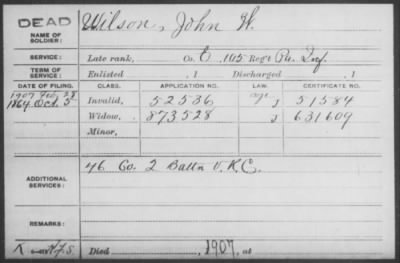 DEAD
NAME OF SOLDIER: Wilson, John W.
SERVICE: Late rank, Co. E 105 Reg't Pa. Inf.
TERM OF SERVICE: Enlisted , 1 Discharged , 1
DATE OF FILING. CLASS. APPLICATION NO. LAW. CERTIFICATE NO.
1907 Feb 28
1864 Oct. 5 Invalid, 52536 51584
Widow, 873528 631609
Minor,
ADDITIONAL SERVICES: 46 Co. 2 Battn V.R.C.
REMARKS:
Died , 1907, at